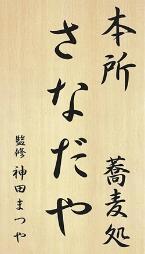 本所
蕎麦処
さなだや
監修 神田まつや